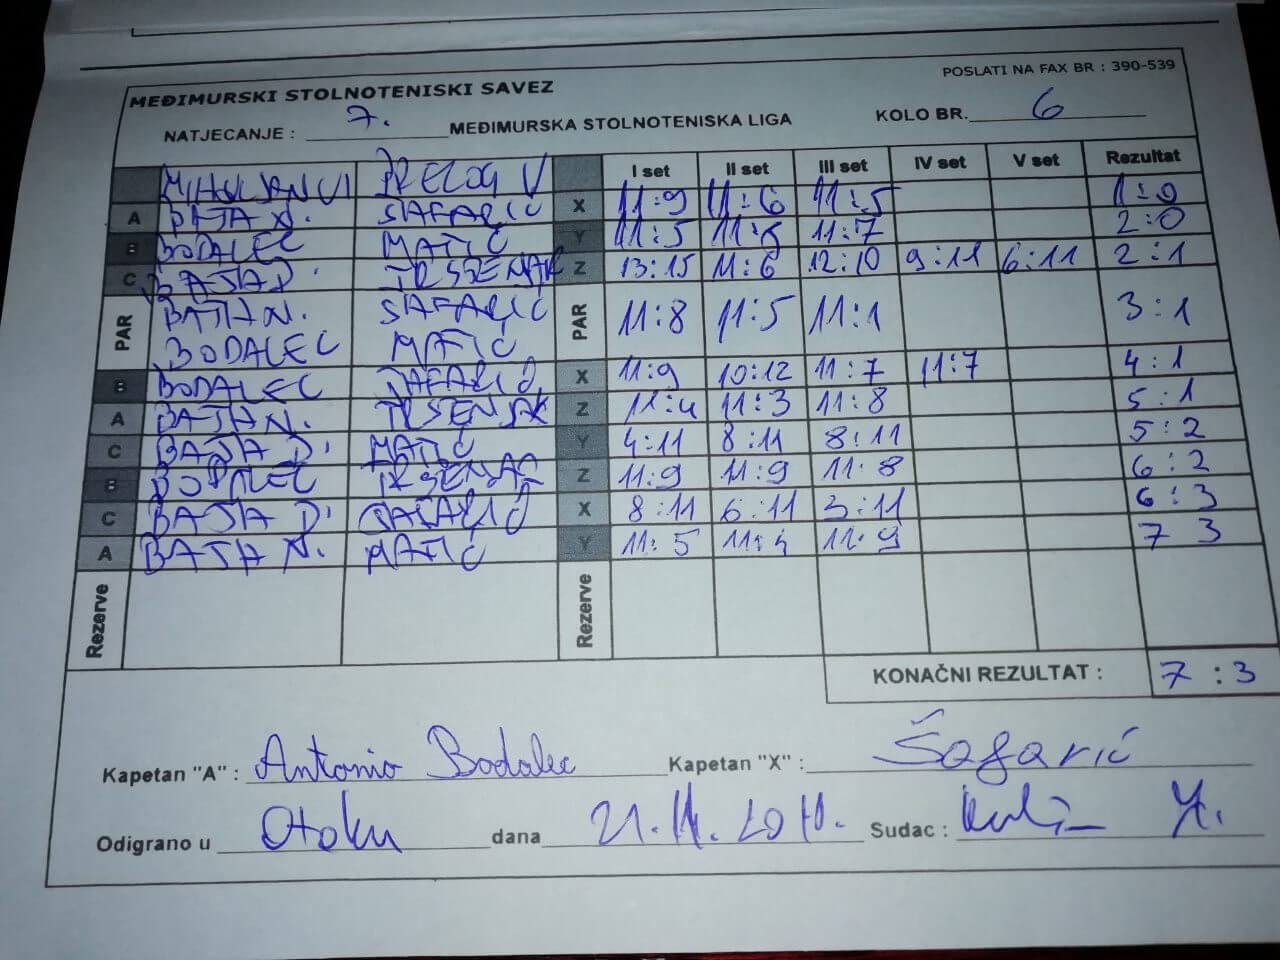 MEĐIMURSKI STOLNOTENISKI SAVEZ
POSLATI NA FAX BR : 390-539
NATJECANJE : 7. MEĐIMURSKA STOLNOTENISKA LIGA KOLO BR. 6
PRELOG V I set II set III set IV set V set Rezultat
A BAJSA N. ŠAFARIĆ X 11:9 11:6 11:5 1:0
B BODALEC MATIĆ Y 11:5 11:5 11:7 2:0
C Z 13:15 11:6 12:10 9:11 6:11 2:1
PAR ŠAFARIĆ PAR 11:8 11:5 11:1 3:1
BODALEC MATIĆ
B BODALEC ŠAFARIĆ X 11:9 10:12 11:7 11:7 4:1
A TRSENJAK Z 11:4 11:3 11:8 5:1
C MATIĆ Y 4:11 8:11 8:11 5:2
B BODALEC Z 11:9 11:9 11:8 6:2
C ŠAFARIĆ X 8:11 6:11 3:11 6:3
A MATIĆ Y 11:5 11:4 11:9 7 3
Rezerve Rezerve
KONAČNI REZULTAT : 7:3
Kapetan "A" : Antonio Bodalec Kapetan "X" : Šafarić
Odigrano u Otoku dana Sudac :